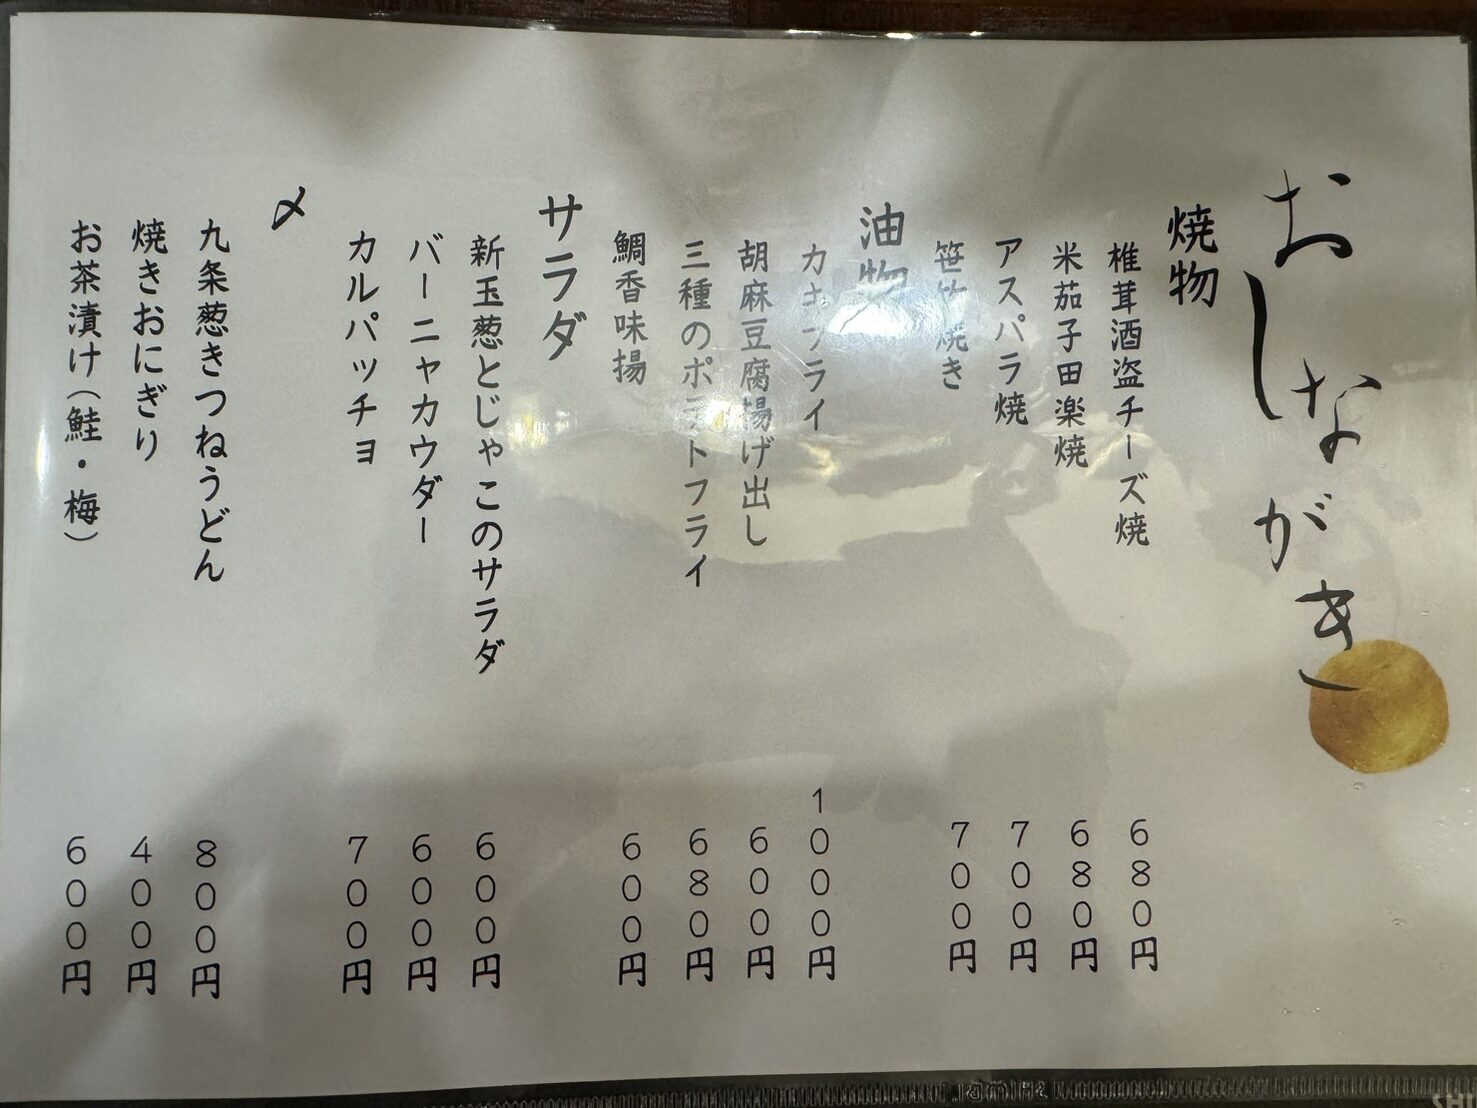 おしながき
焼物
椎茸酒盗チーズ焼 680円
米茄子田楽焼 680円
アスパラ焼 700円
笹竹焼き 700円
油物
カキフライ 1000円
胡麻豆腐揚げ出し 600円
三種のポテトフライ 680円
鯛香味揚 600円
サラダ
新玉葱とじゃこのサラダ 600円
バーニャカウダー 600円
カルパッチョ 700円
〆
九条葱きつねうどん 800円
焼きおにぎり 400円
お茶漬け(鮭・梅) 600円